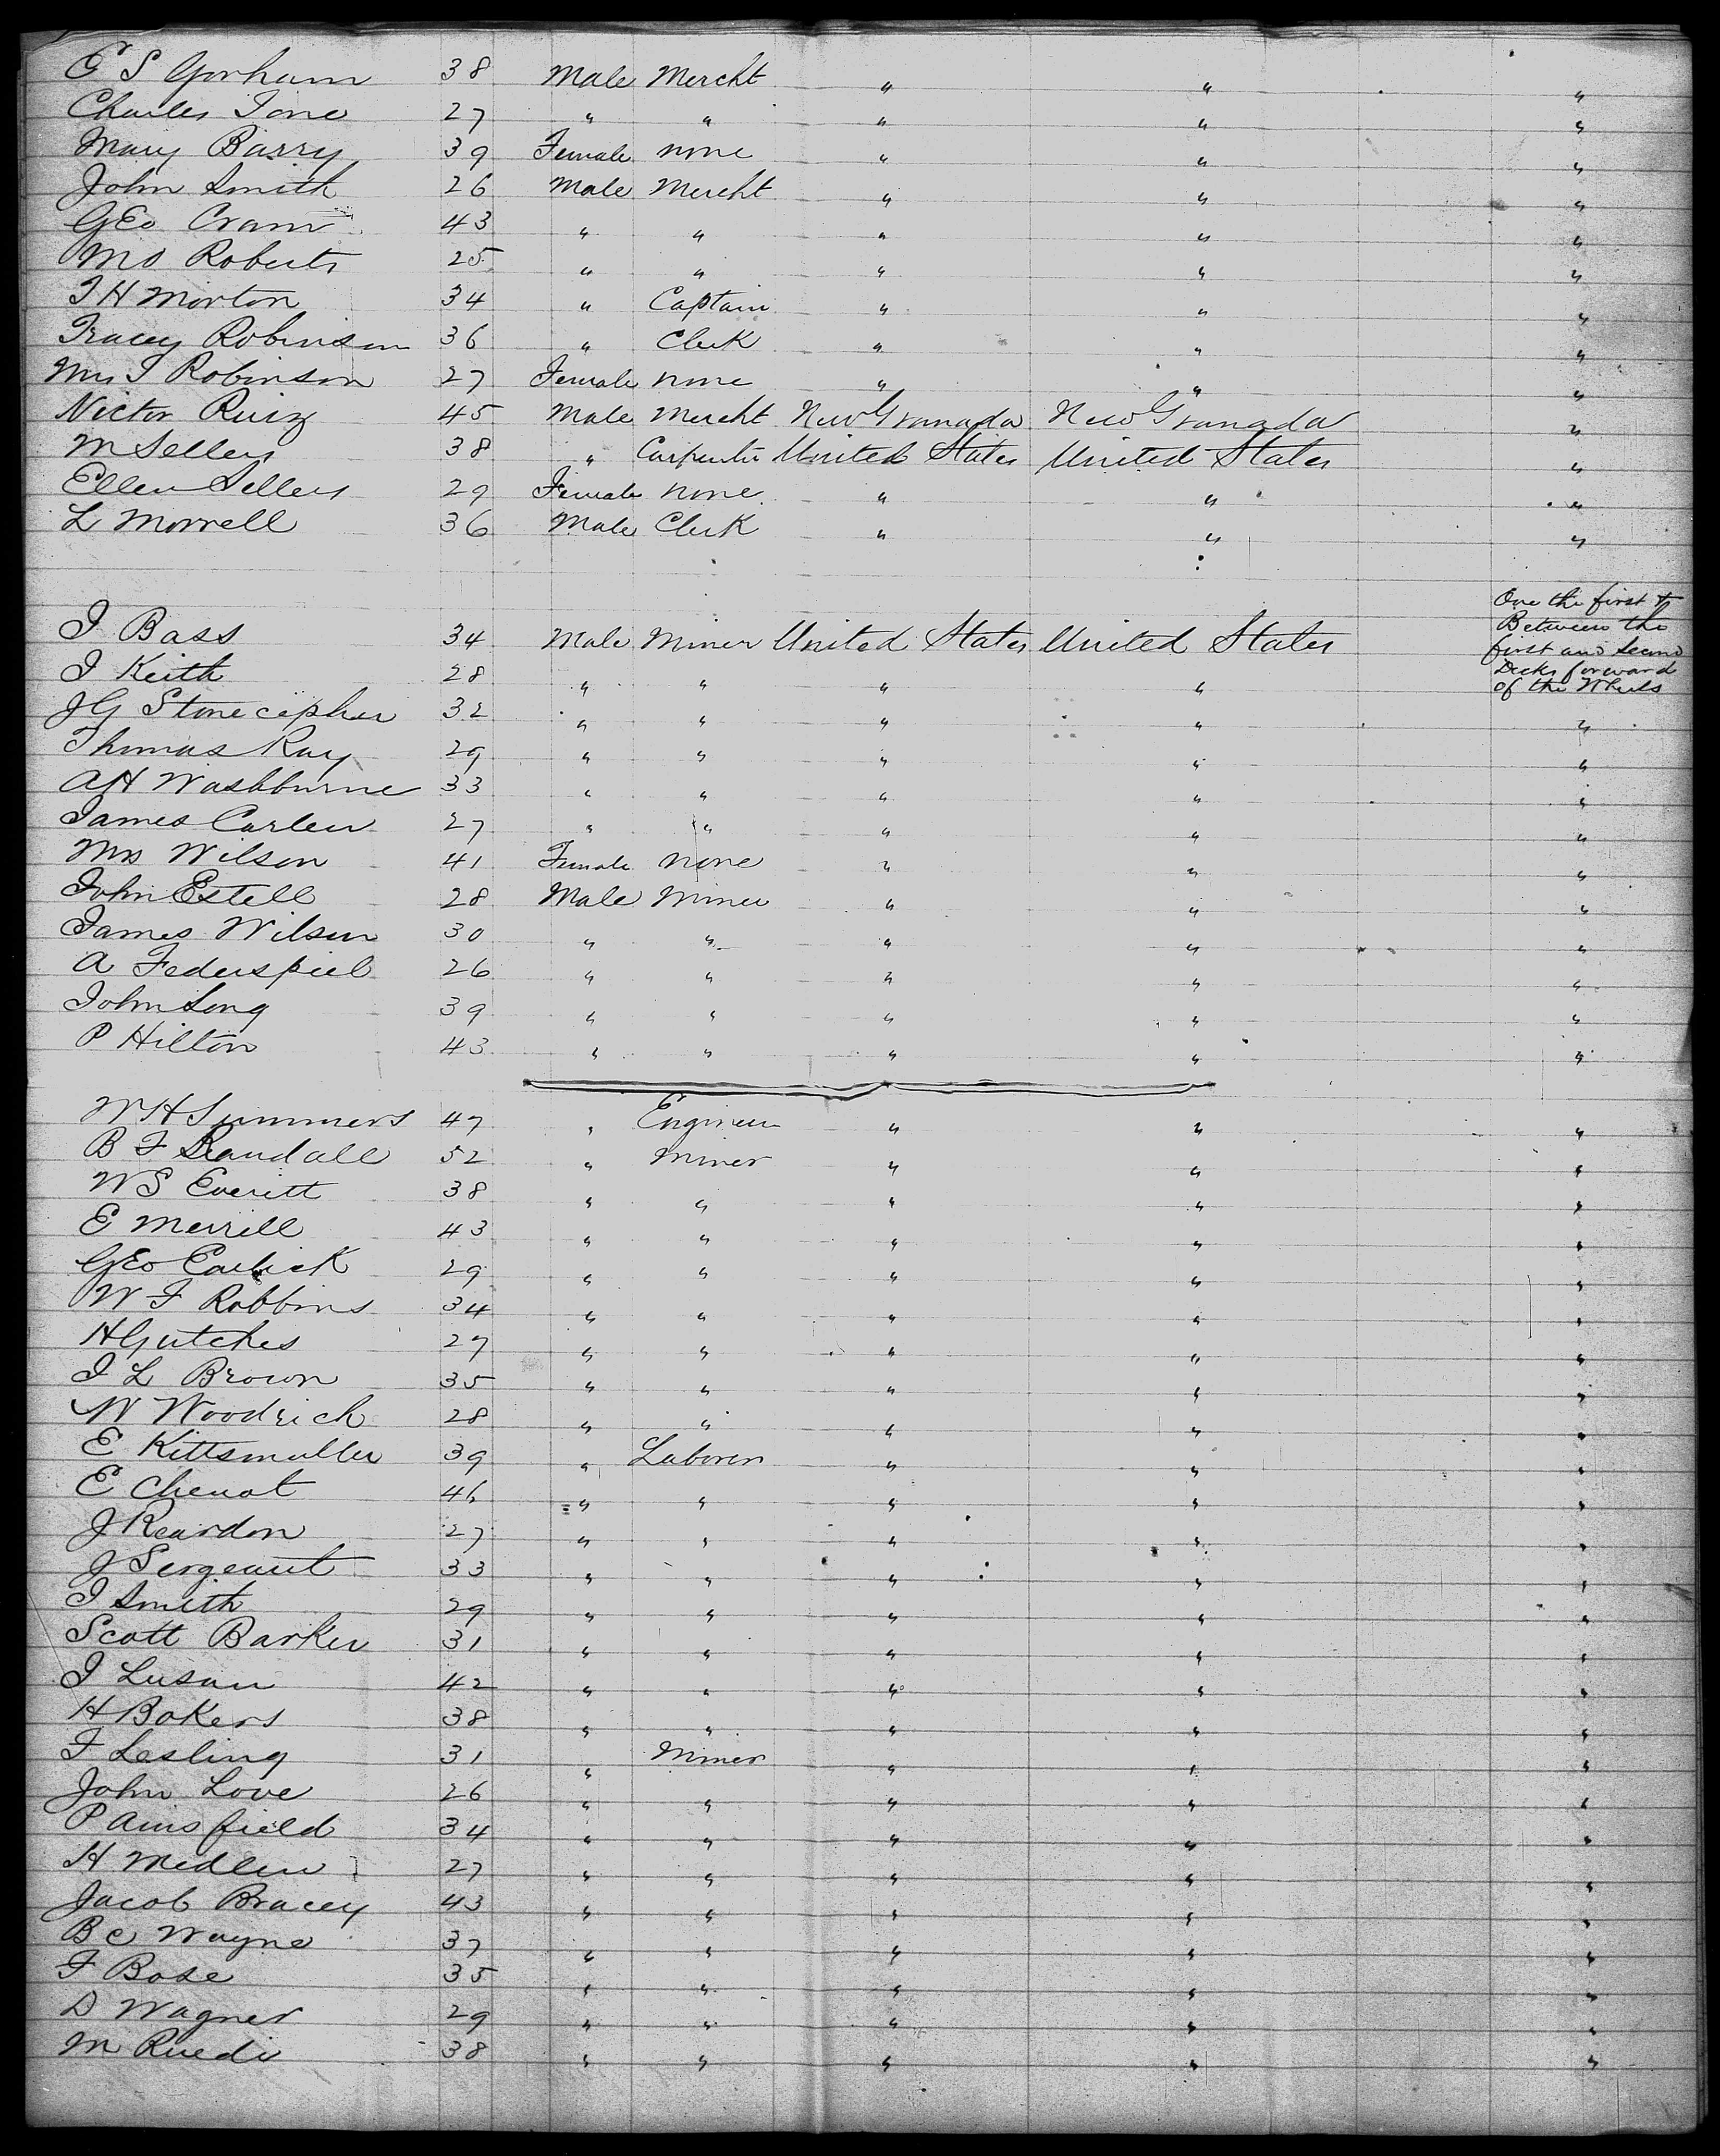 G S Gorham 38 Male Mercht " " "
Charles Tone 27 " " " " "
Mary Barry 39 Female none " " "
John Smith 26 Male Mercht " " "
GEo Cram 43 " " " " "
Roberts 25 " " " " "
J H Morton 34 " Captain " " "
Tracey Robinson 36 " Clerk " " "
Mrs T Robinson 27 Female none " " "
Victor Ruiz 45 Male Mercht New Granada New Granada "
M Sellers 38 " Carpenter United States United States "
Ellen Sellers 29 Female none " " "
L Morrell 36 Male Clerk " " "
On the first &
Between the
first and Second
Decks forward
of the Wheels
J Bass 34 Male Miner United States United States
J Keith 28 " " " "
J G Stonecipher 32 " " " " "
Thomas Ray 29 " " " " "
A H Washburne 33 " " " " "
James Carlen 27 " " " " "
Mrs Wilson 41 Female none " " "
John Estell 28 Male Miner " " "
James Wilson 30 " " " " "
A Federspiel 26 " " " " "
John Long 39 " " " " "
P Hilton 43 " " " " "
W H Summers 47 " Engineer " " "
B F Randall 52 " Miner " " "
W S Everett 38 " " " " "
E Merrill 43 " " " " "
GEo 29 " " " " "
W F Robbins 34 " " " " "
H Gutches 27 " " " " "
J L Brown 35 " " " " "
W Woodrich 28 " " " " "
E Kittsmuller 39 " Laborer " " "
E Chenot 46 " " " " "
J Reardon 27 " " " " "
J Sergeant 33 " " " " "
J Smith 29 " " " " "
Scott Barker 31 " " " " "
J Lusan 42 " " " " "
H Bakers 38 " " " " "
F Lesling 31 " Miner " " "
John Love 26 " " " " "
P Ainsfield 34 " " " " "
H Medlen 27 " " " " "
Jacob Bracey 43 " " " " "
B C Wayne 37 " " " " "
F Bose 35 " " " " "
D Wagner 29 " " " " "
M Ruedi 38 " " " " "